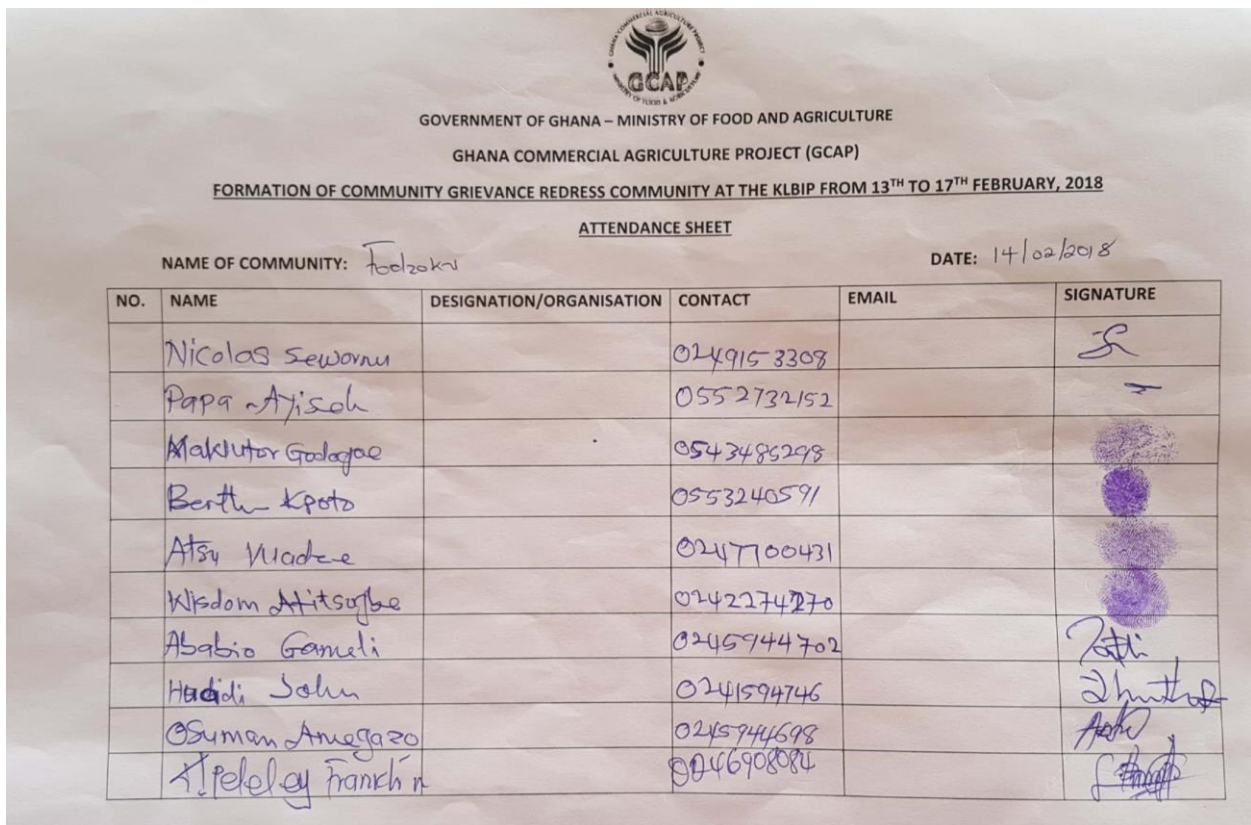 GHANA COMMERCIAL AGRICULTURE PROJECT
GCAP
MINISTRY OF FOOD & AGRICULTURE
GOVERNMENT OF GHANA – MINISTRY OF FOOD AND AGRICULTURE
GHANA COMMERCIAL AGRICULTURE PROJECT (GCAP)
FORMATION OF COMMUNITY GRIEVANCE REDRESS COMMUNITY AT THE KLBIP FROM 13TH TO 17TH FEBRUARY, 2018
ATTENDANCE SHEET
NAME OF COMMUNITY: Fodzoku DATE: 14/02/2018
NO. NAME DESIGNATION/ORGANISATION CONTACT EMAIL SIGNATURE
Nicolas Sewornu 0249153308
Papa Ayisah 0552732152
Maklutor 0543485298
Bertha Kpoto 0553240591
Atsu 0247700431
Wisdom Atitsogbe 0242274270
Ababio Gameli 0245944702
Hadidi John 0241594746
Osuman Amegazo 0245944698
Franklin 0246908084